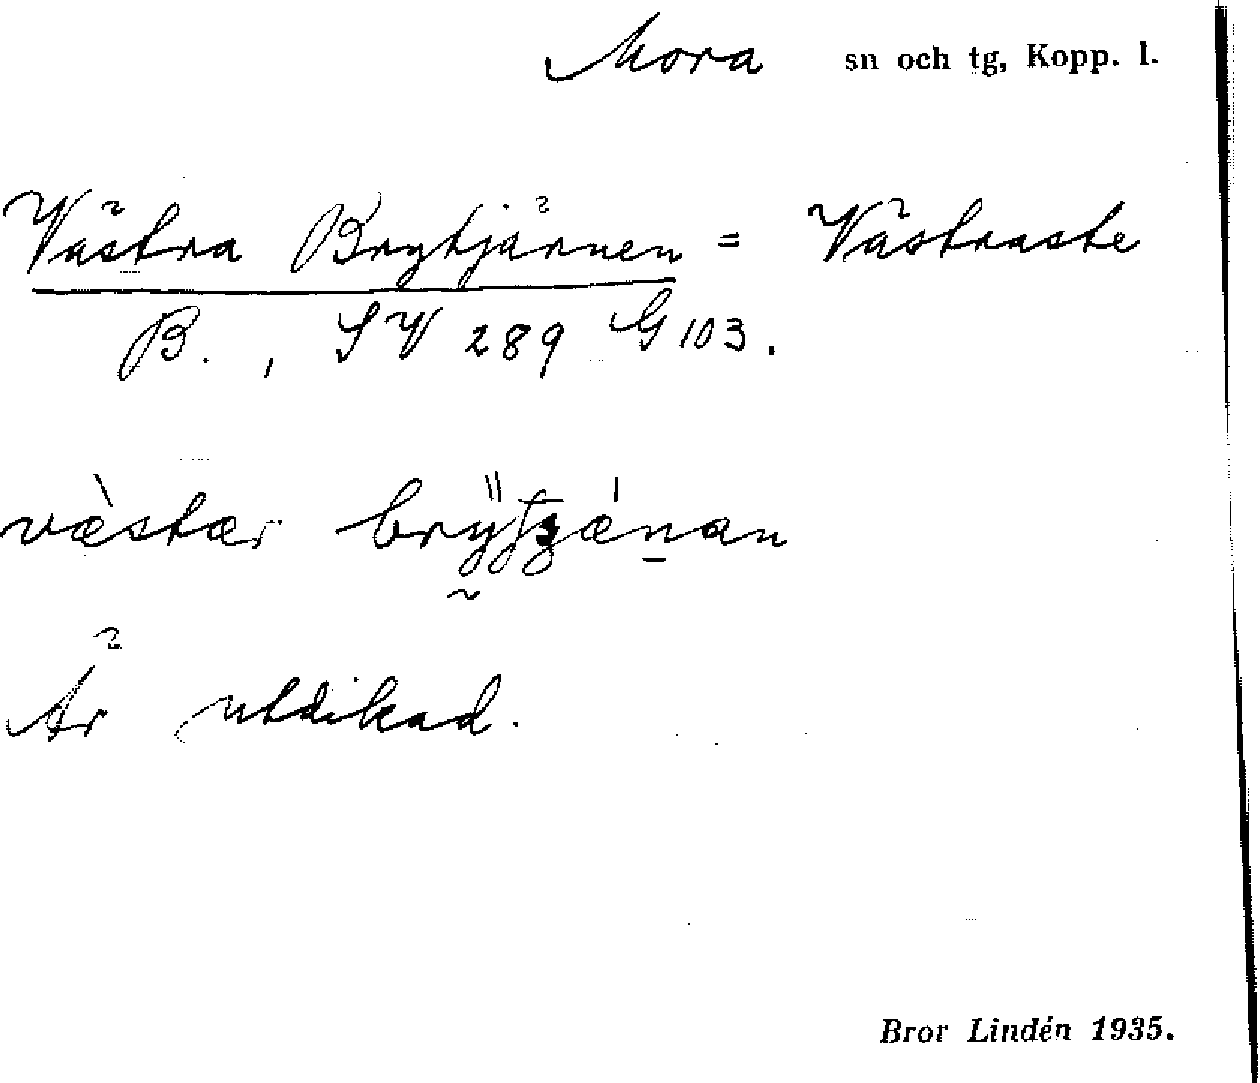 Mora sn och tg, Kopp. l.
Västra Brytjärnen = Västraste
B., SV 289 G 103.
västær
Är utdikad.
Bror Lindén 1935.